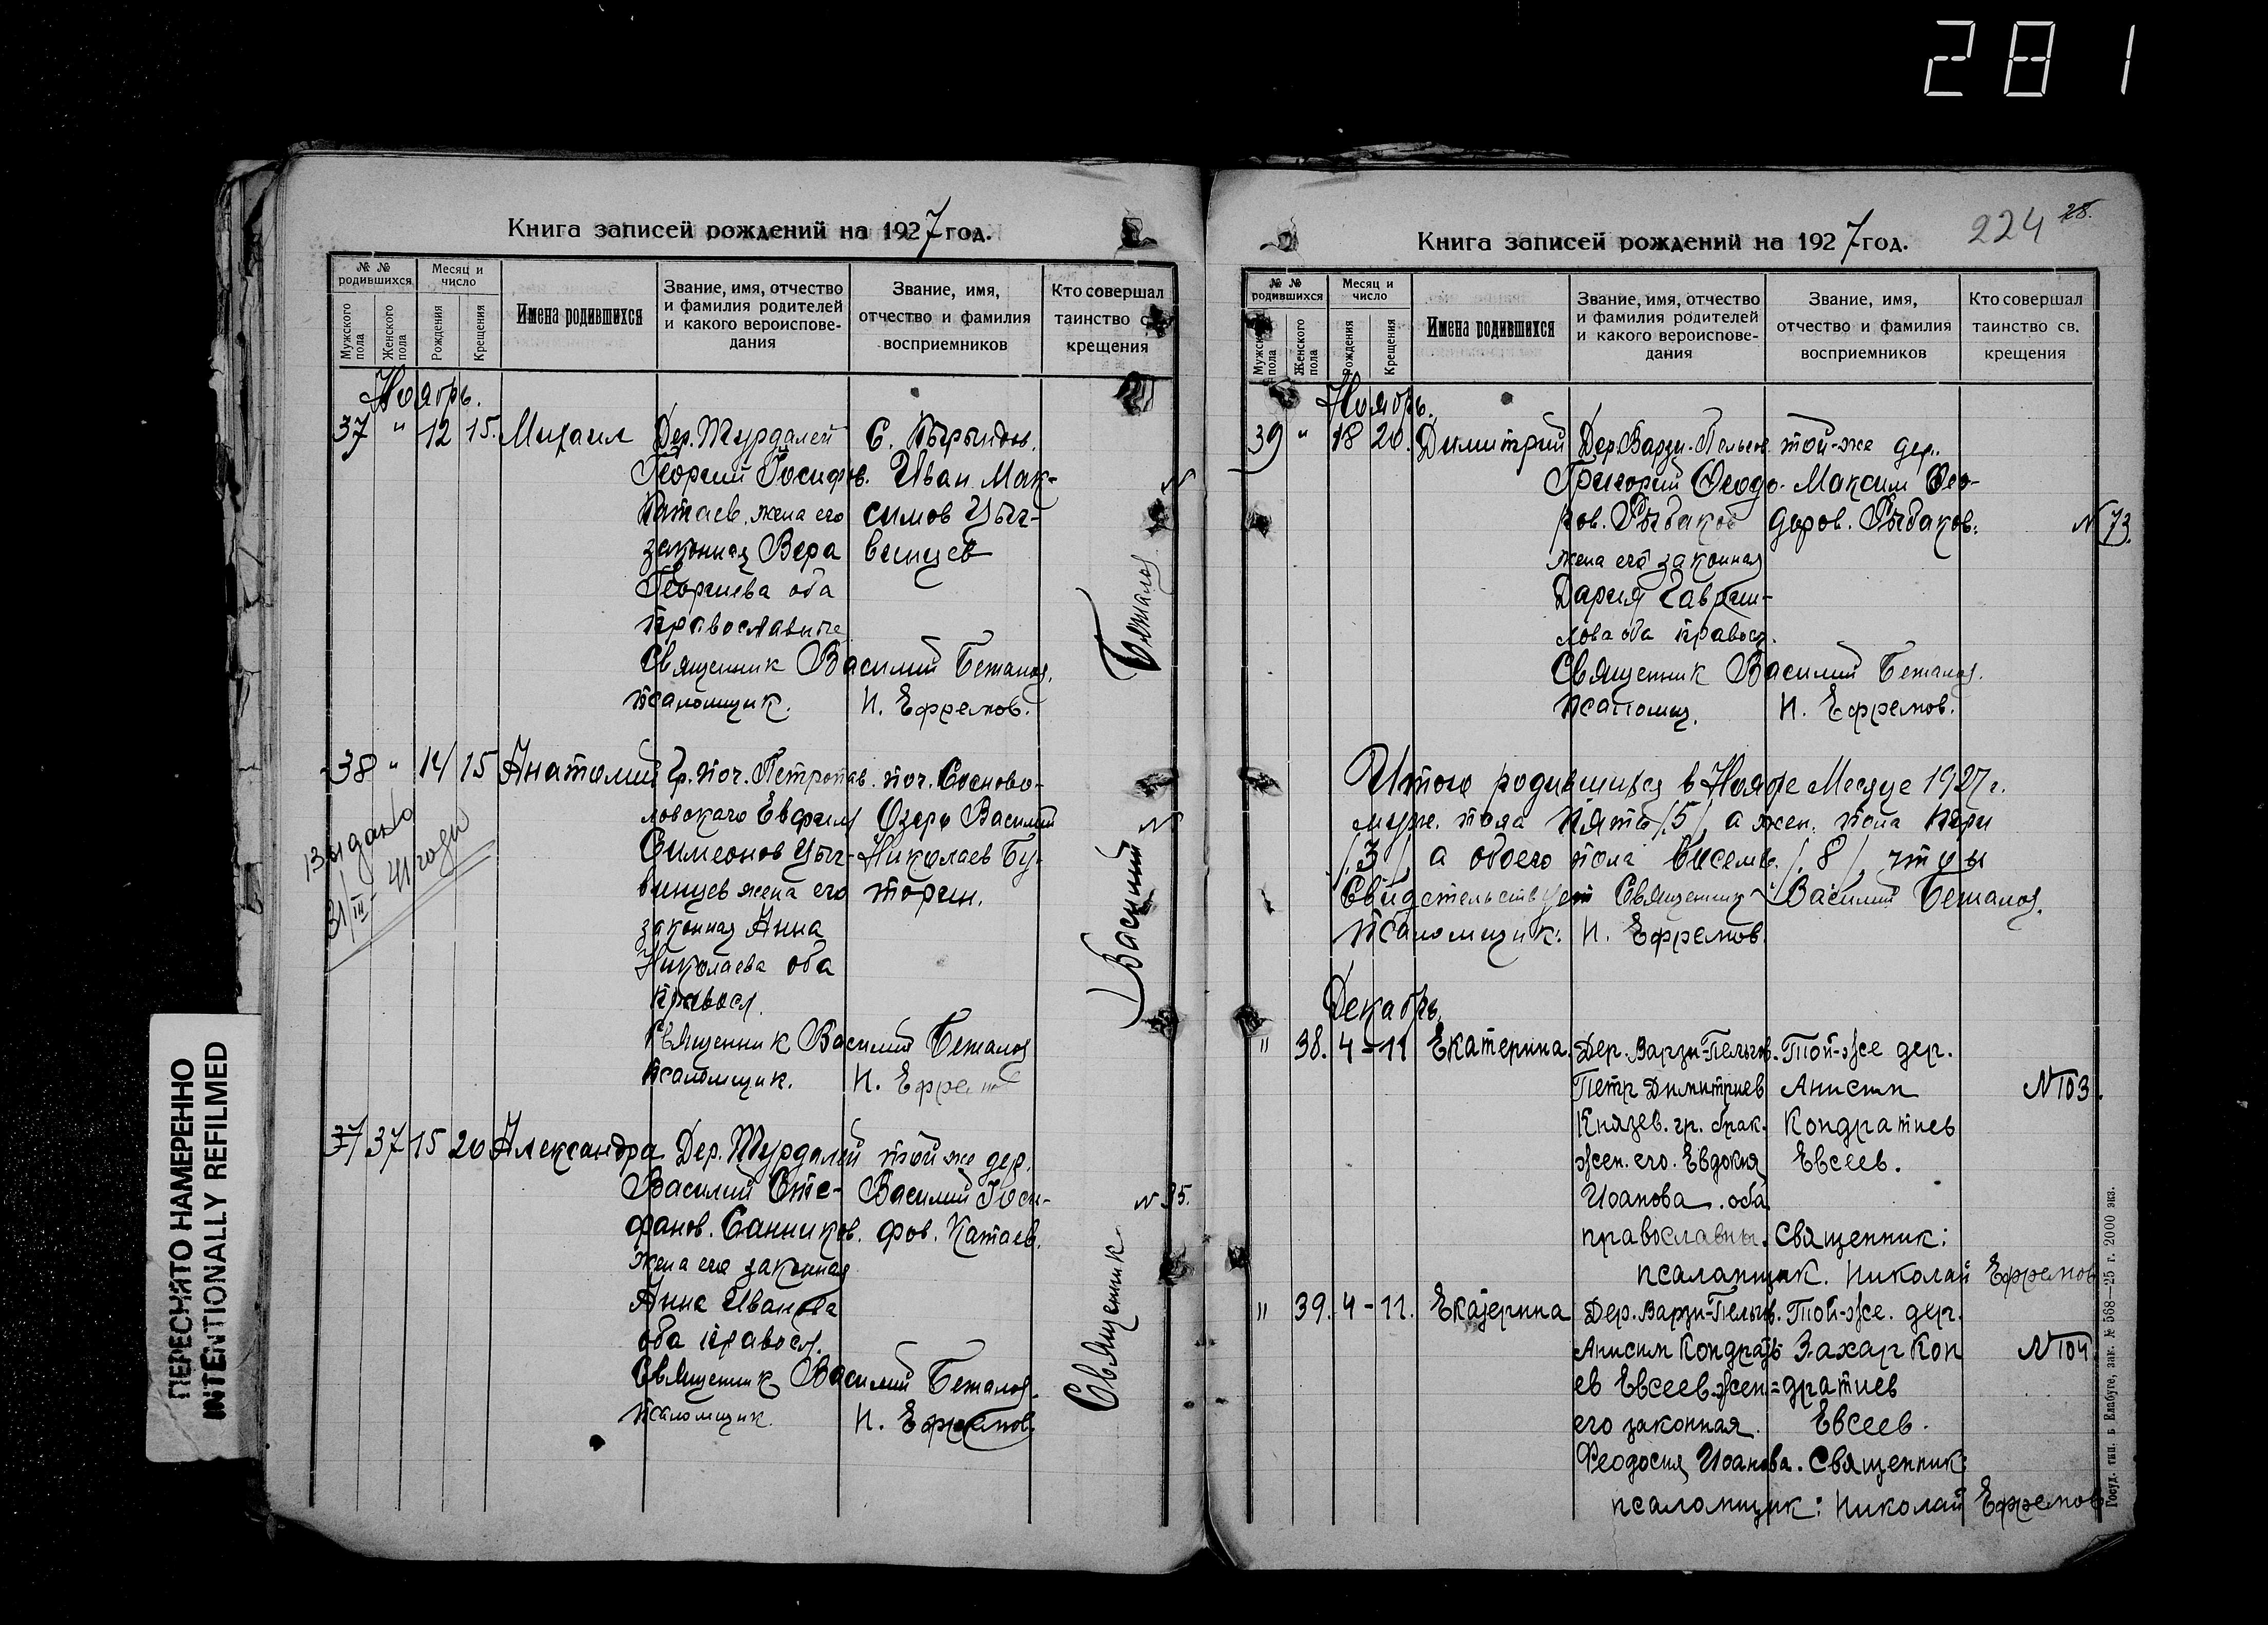 281
Книга записей рождений на 1927 год.
№ № родившихся
Месяц и число
Мужского пола
Женского пола
Рождения
Крещения
Имена родившихся
Звание, имя, отчество и фамилия родителей и какого вероиспове-
дания
Звание, имя, отчество и фамилия восприемников
Кто совершал таинство св. крещения
Ноябрь.
37 " 12 15. Михаил Дер. Турдалей С.
Георгий Иосифов. Иван Мак-
Катаев, жена его симов Цыг-
законная Вера винцев
Георгиева оба
православные
Священник Василий Бетанов.
псаломщик. Н. Ефремов.
38 " 14 15 Анатолий Гр. поч. Петропав. поч. Сосново-
ловскаго Евфим Озеро Василий
Симеонов Цыг- Николаев Бу-
винцев жена его торин.
законная Анна
Николаева оба
правосл.
Священник Василий Бетанов
псаломщик. Н. Ефремов
Выдано
31/III - 41 года
37 37 15 20 Александра Дер. Турдалей той же дер.
Василий Сте- Василий Иоси-
фанов. Санников. фов. Катаев.
жена его законная
Анна Иванова
оба правосл.
Священник Василий Бетанов.
псаломщик. Н. Ефремов.
N 35.
Священник Василий Бетанов
ПЕРЕСНЯТО НАМЕРЕННО
INTENTIONALLY REFILMED
Книга записей рождений на 1927 год.
224 28.
№ № родившихся
Месяц и число
Мужского пола
Женского пола
Рождения
Крещения
Имена родившихся
Звание, имя, отчество и фамилия родителей и какого вероиспове-
дания
Звание, имя, отчество и фамилия восприемников
Кто совершал таинство св. крещения
Ноябрь.
39 " 18 20. Димитрий Дер. Варзи-Пельгов. той-же дер.
Григорий Феодо- Максим Фео-
ров. Рыбаков доров. Рыбаков.
N 73.
жена его законная
Дария Гаврии-
лова оба правосл.
Священник Василий Бетанов.
псаломщ. Н. Ефремов.
Итого родившихся в Ноябре Месяце 1927 г.
муж. пола пять /5/, а жен. пола три
/3/, а обоего пола восемь /8/,
Свидетельствует Священник Василий Бетанов.
Псаломщик: Н. Ефремов.
Декабрь.
" 38. 4 - 11 Екатерина. Дер. Варзи-Пельгов. Той-же дер.
Петр Димитриев Анисим
N 103.
Князев. гр. брак. Кондратиев
жен. его. Евдокия Евсеев.
Иоанова. оба
православны. Священник:
псаломщик. Николай Ефремов
" 39. 4 - 11. Екатерина Дер. Варзи-Пельгов. Той-же. дер.
Анисим Кондрать- Захар Кон
N 104.
ев Евсеев. жен= дратиев
его законная. Евсеев.
Феодосия Иоанова. Священник:
псаломщик: Николай Ефремов
Госуд. тип. в Елабуге, зак. № 568—25 г. 2000 экз.